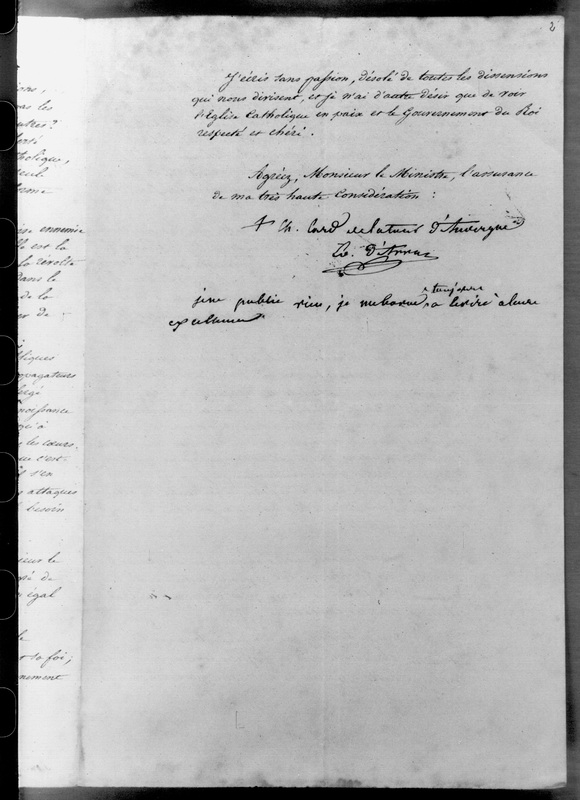 2
J'écris sans passion, désolé de toutes les dissensions
qui nous divisent, et je n'ai d'autre désir que de voir
l'Eglise Catholique en paix et le Gouvernement du Roi
respecté et chéri.
Agréez, Monsieur le Ministre, l'assurance
de ma très haute considération :
+ Ch. Card de la tour d'Auvergne
Ev. d'Arras
je ne publie rien, je me borne toujours à écrire à leurs
ions,
pas les
autres?
tholique,
ennemie
lle est la
la révolte
dans le
de la
de
liques
opagateurs
qui à
les cœurs.
que c'est-
il s'en
attaques
besoin
sieur le
de
égal
le
et sa foi;
nement